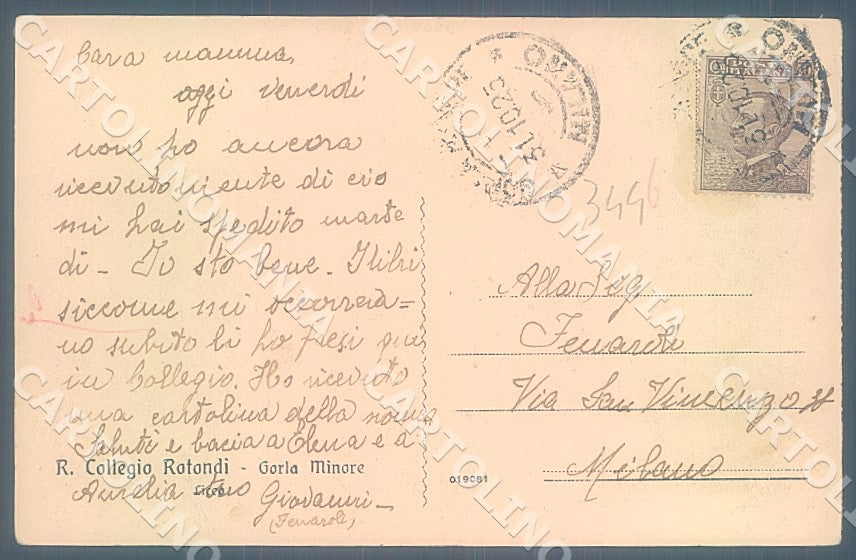 Cara mamma,
oggi venerdì
non ho ancora
ricevuto niente di ciò
mi hai spedito marte
dì - Io sto bene. I libri
siccome mi occorreva=
no subito li ho presi qui
in Collegio. Ho ricevuto
una cartolina della nonna
Saluti e bacia a Elena e a
R. Collegio Rotondi - Gorla Minore
Aurelia tuo Giovanni -
(Fenaroli)
MILANO
31.10.25
3446
Alla Sig
Fenaroli
Via San Vincenzo
Milano
019081
CARTOLINOMANIA